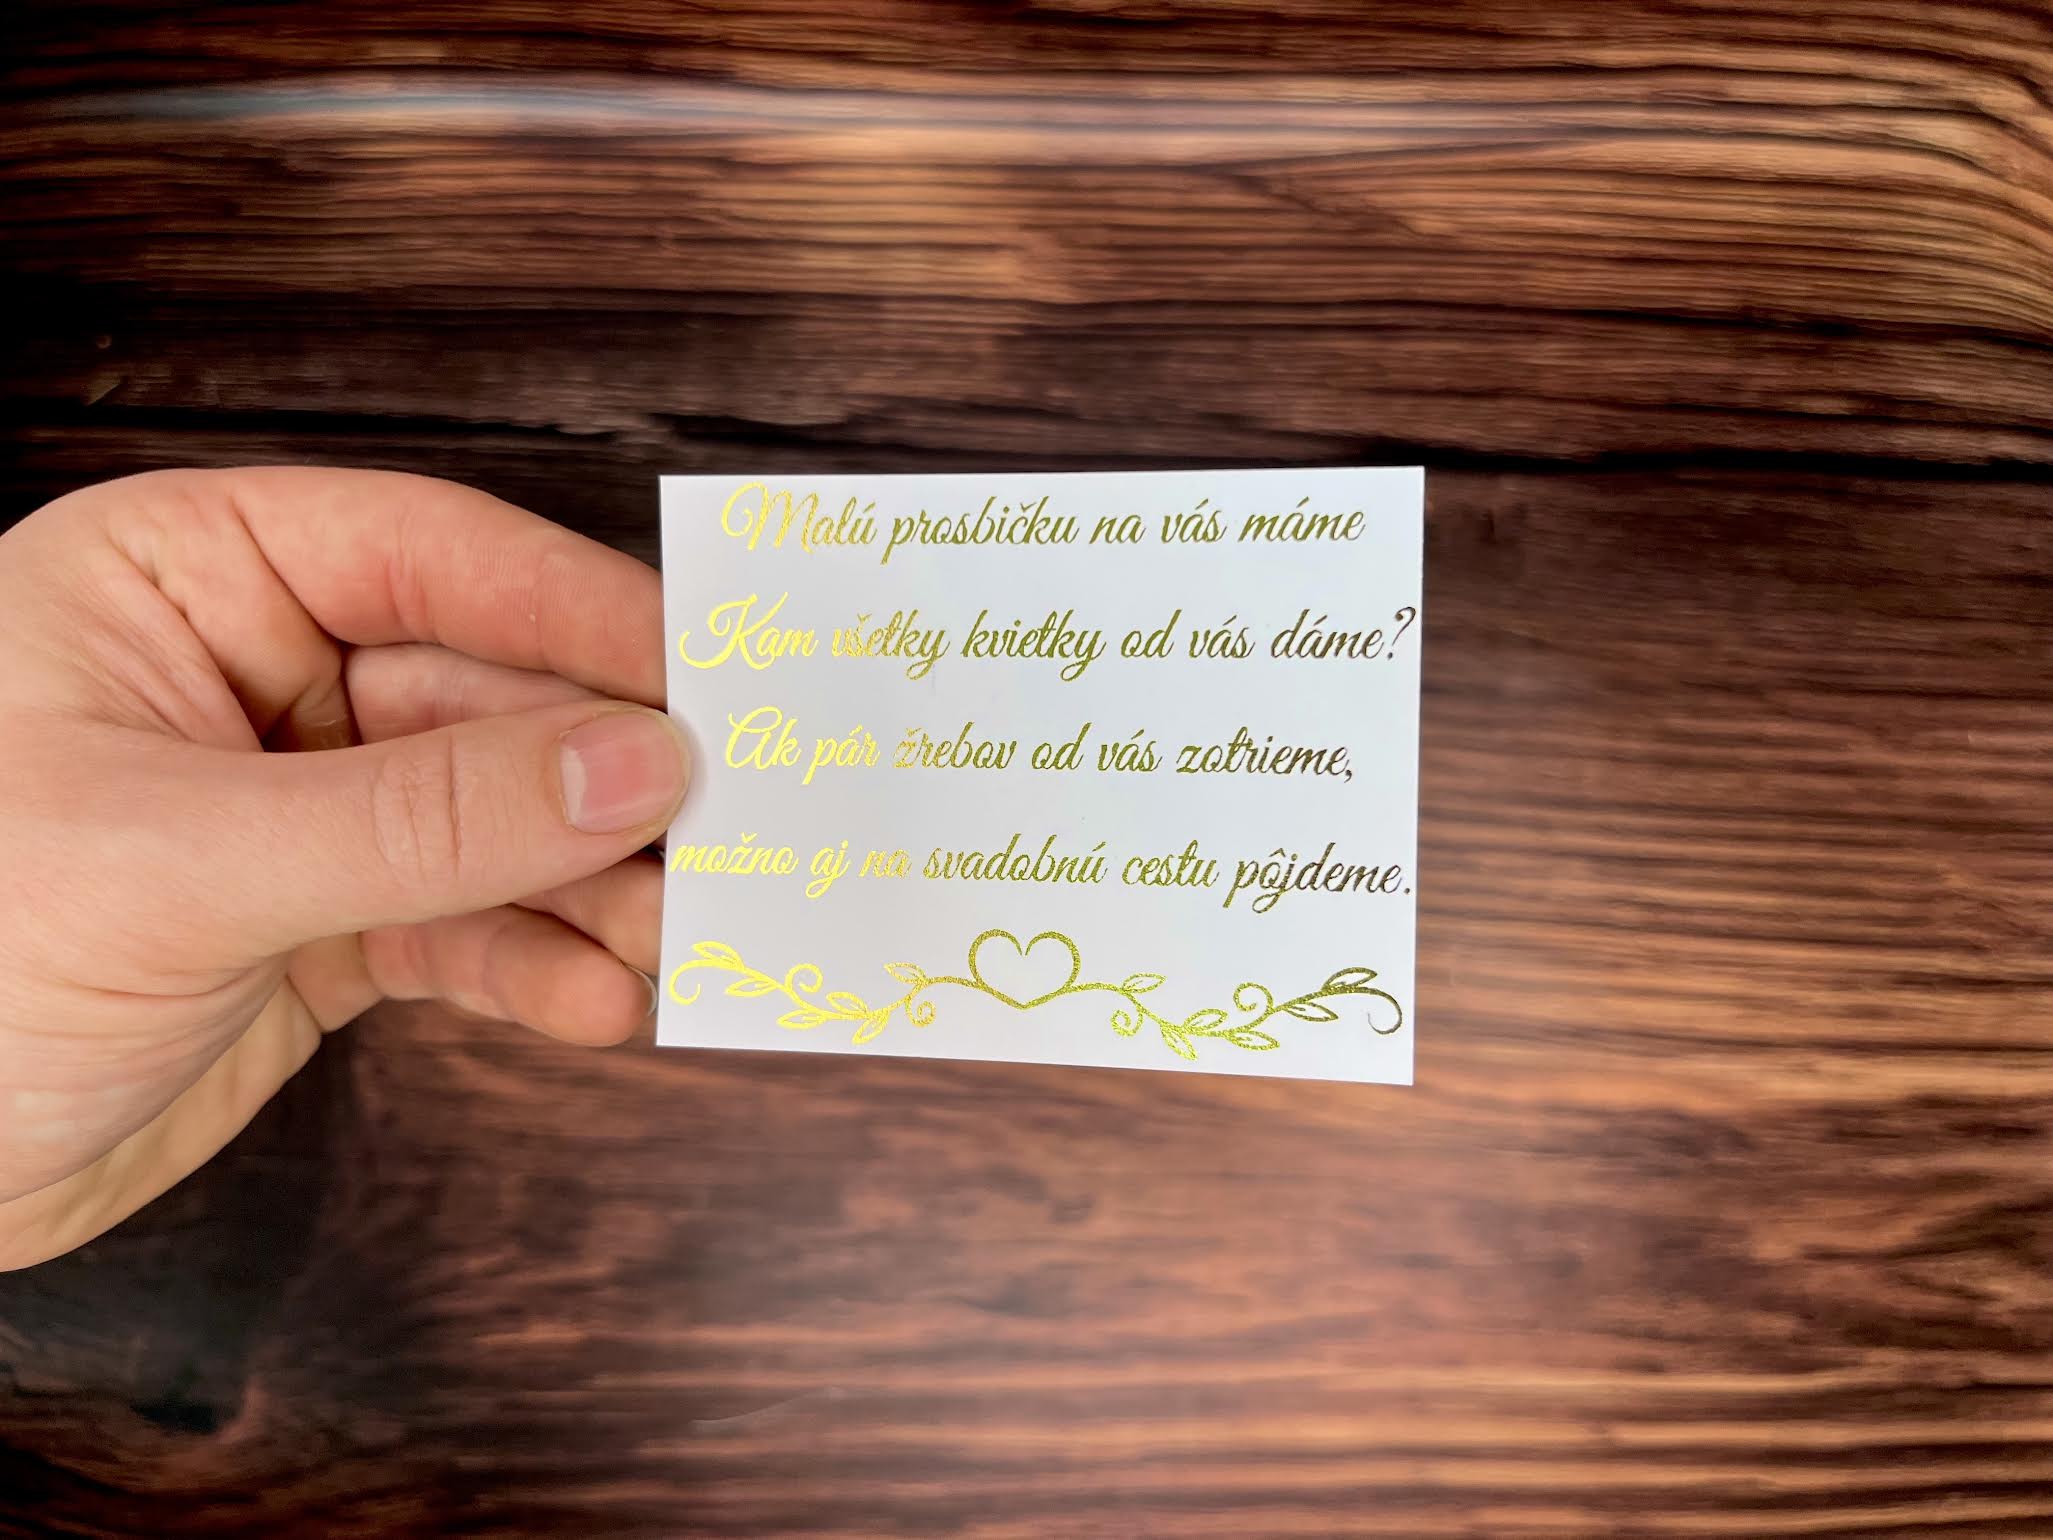 Malú prosbičku na vás máme
Kam všetky kvietky od vás dáme?
Ak pár žrebov od vás zotrieme,
možno aj na svadobnú cestu pôjdeme.